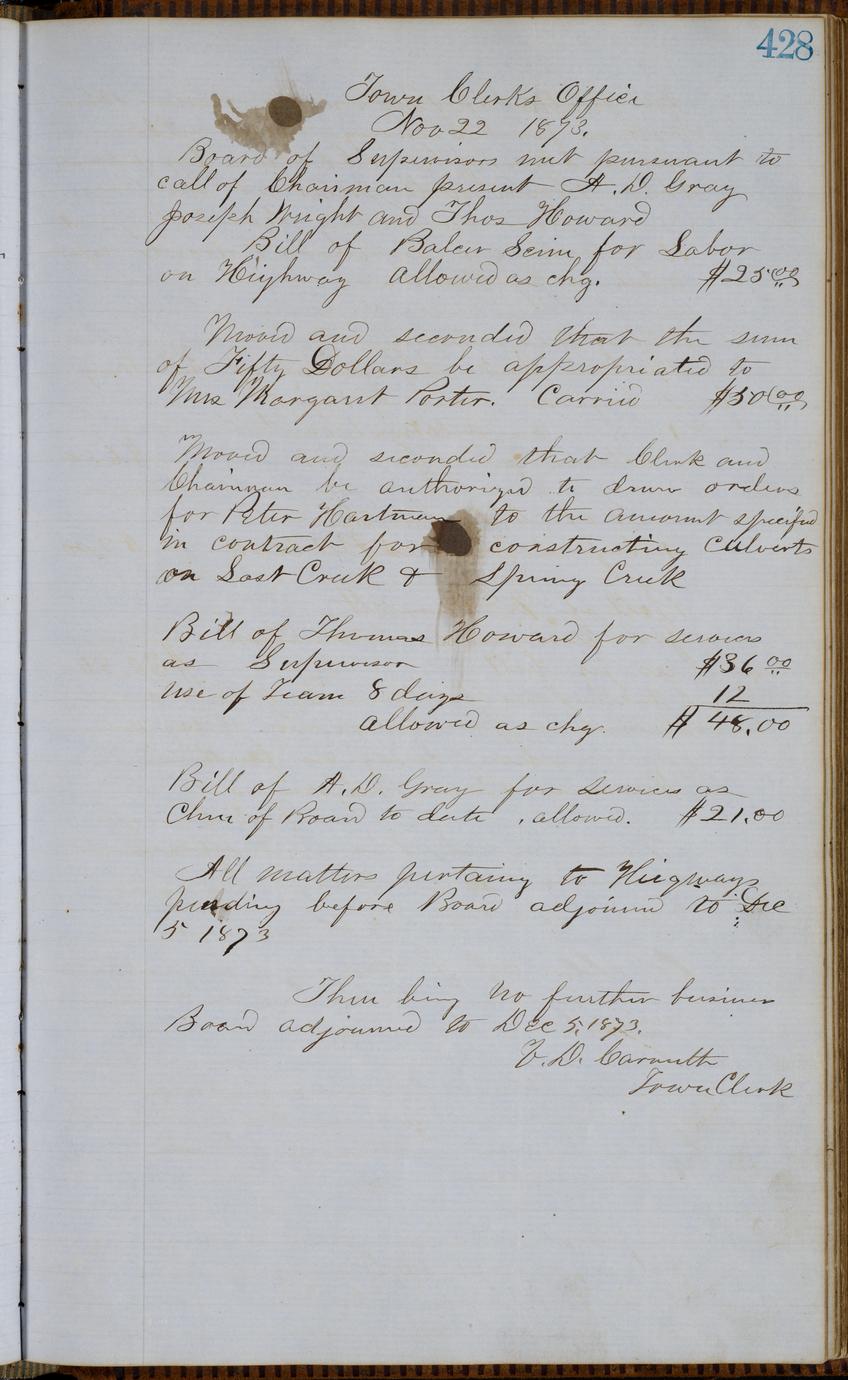 428
Town Clerks Office
Nov 22 1873.
Board of Supervisors met pursuant to
call of Chairman present A. D. Gray
Joseph Wright and Thos Howard
Bill of for Labor
on Highway allowed as chg. $25.00
Moved and seconded that the sum
of Fifty Dollars be appropriated to
Mrs Margaret Porter. Carried $50.00
Moved and seconded that Clerk and
Chairman be authorized to draw orders
for Peter Hartman to the amount specified
in contract for constructing Culverts
on Lost Creek & Spring Creek
Bill of Thomas Howard for services
as Supervisor $36.00
use of Team 8 days 12
allowed as chg. $ 48.00
Bill of A. D. Gray for services as
Chm of Board to date, allowed. $21.00
All matters pertaing to Higways
pending before Board adjoined to Dec
5 1873
There being no further business
Board adjourned to Dec 5, 1873.
D. Carmuth
Town Clerk